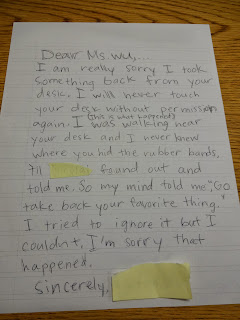 Dear Ms. Wu,...
I am really sorry I took
something back from your
desk. I will never touch
your desk without permission
again. (this is what happened)
I was walking near
your desk and I never knew
where you hid the rubber bands,
till found out and
told me. So my mind told me, "Go
take back your favorite thing."
I tried to ignore it but I
couldn't. I'm sorry that
happened.
Sincerely,